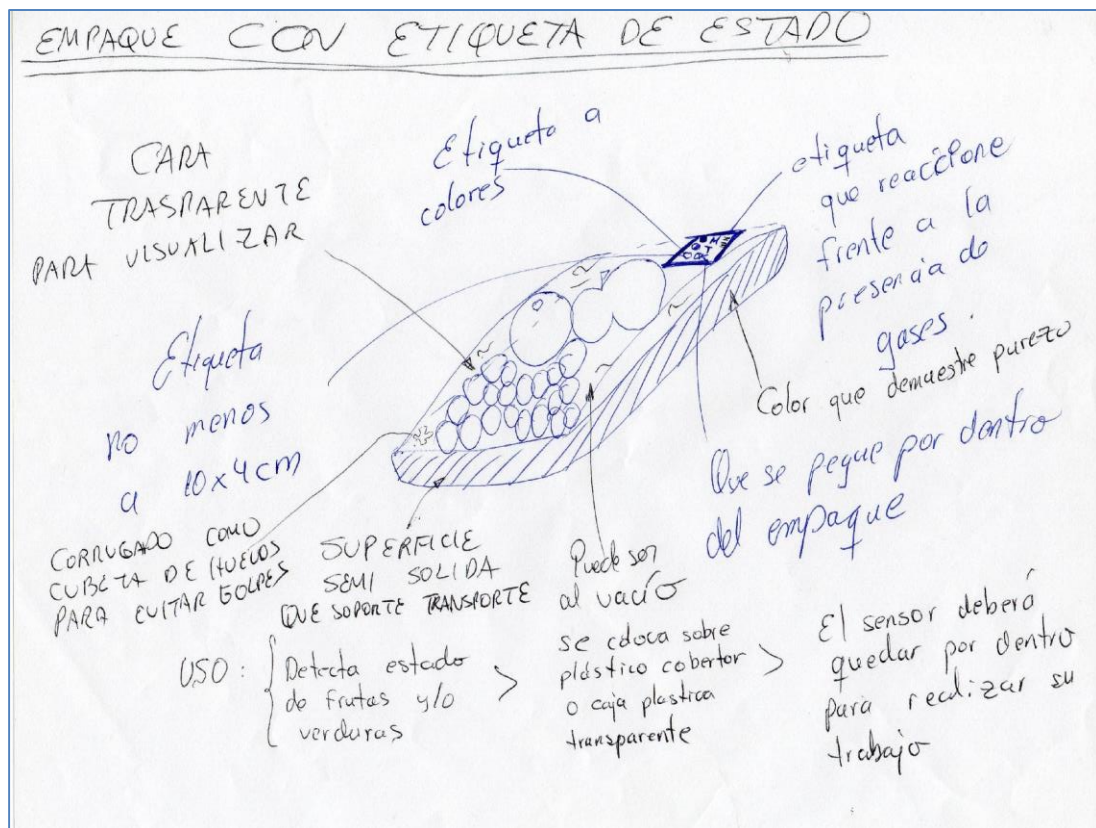 EMPAQUE CON ETIQUETA DE ESTADO
CARA
TRASPARENTE
PARA VISUALIZAR
Etiqueta a
colores
etiqueta
que reaccione
frente a la
presencia de
gases.
Etiqueta
no menos
a 10x4cm
Color que demuestre pureza
Que se pegue por dentro
del empaque
CORRUGADO COMO
CUBETA DE HUEVOS
PARA EVITAR GOLPES
SUPERFICIE
SEMI SOLIDA
QUE SOPORTE TRANSPORTE
Puede ser
al vacío
USO:
Detecta estado
de frutas y/o
verduras
>
se coloca sobre
plástico cobertor
o caja plastica
transparente
>
El sensor deberá
quedar por dentro
para realizar su
trabajo